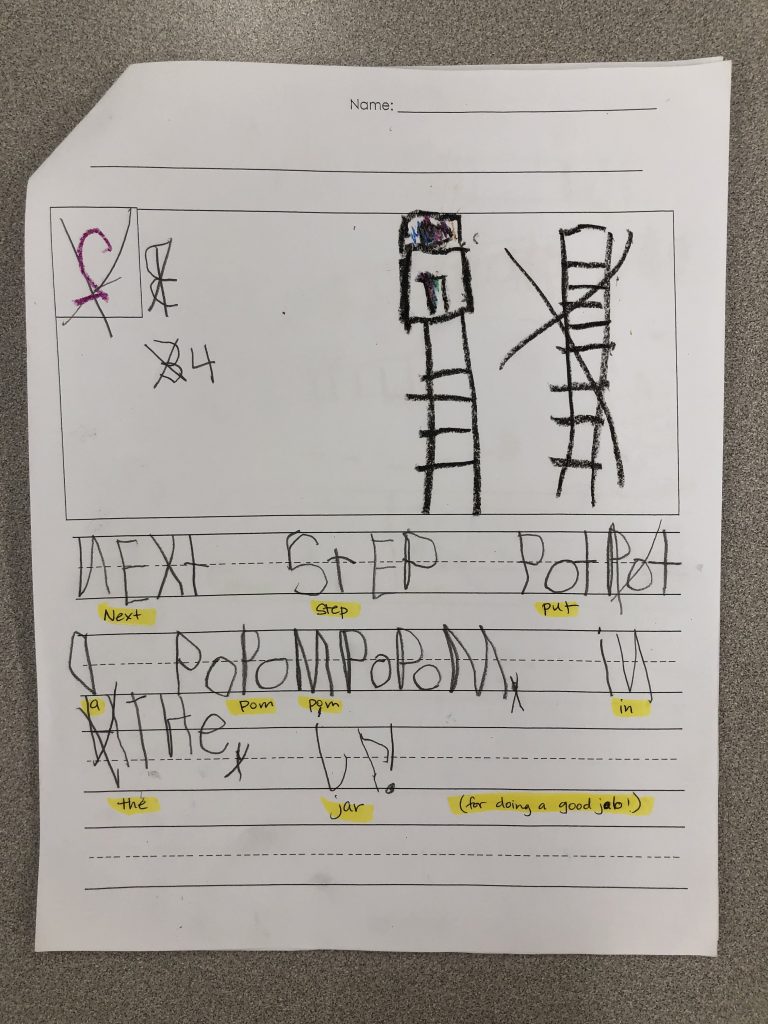 Name:
4
NEXt StEP Pot
Next step put
a PoPoMPoPoM, iN
a pom pom in
THe
the jar (for doing a good job!)